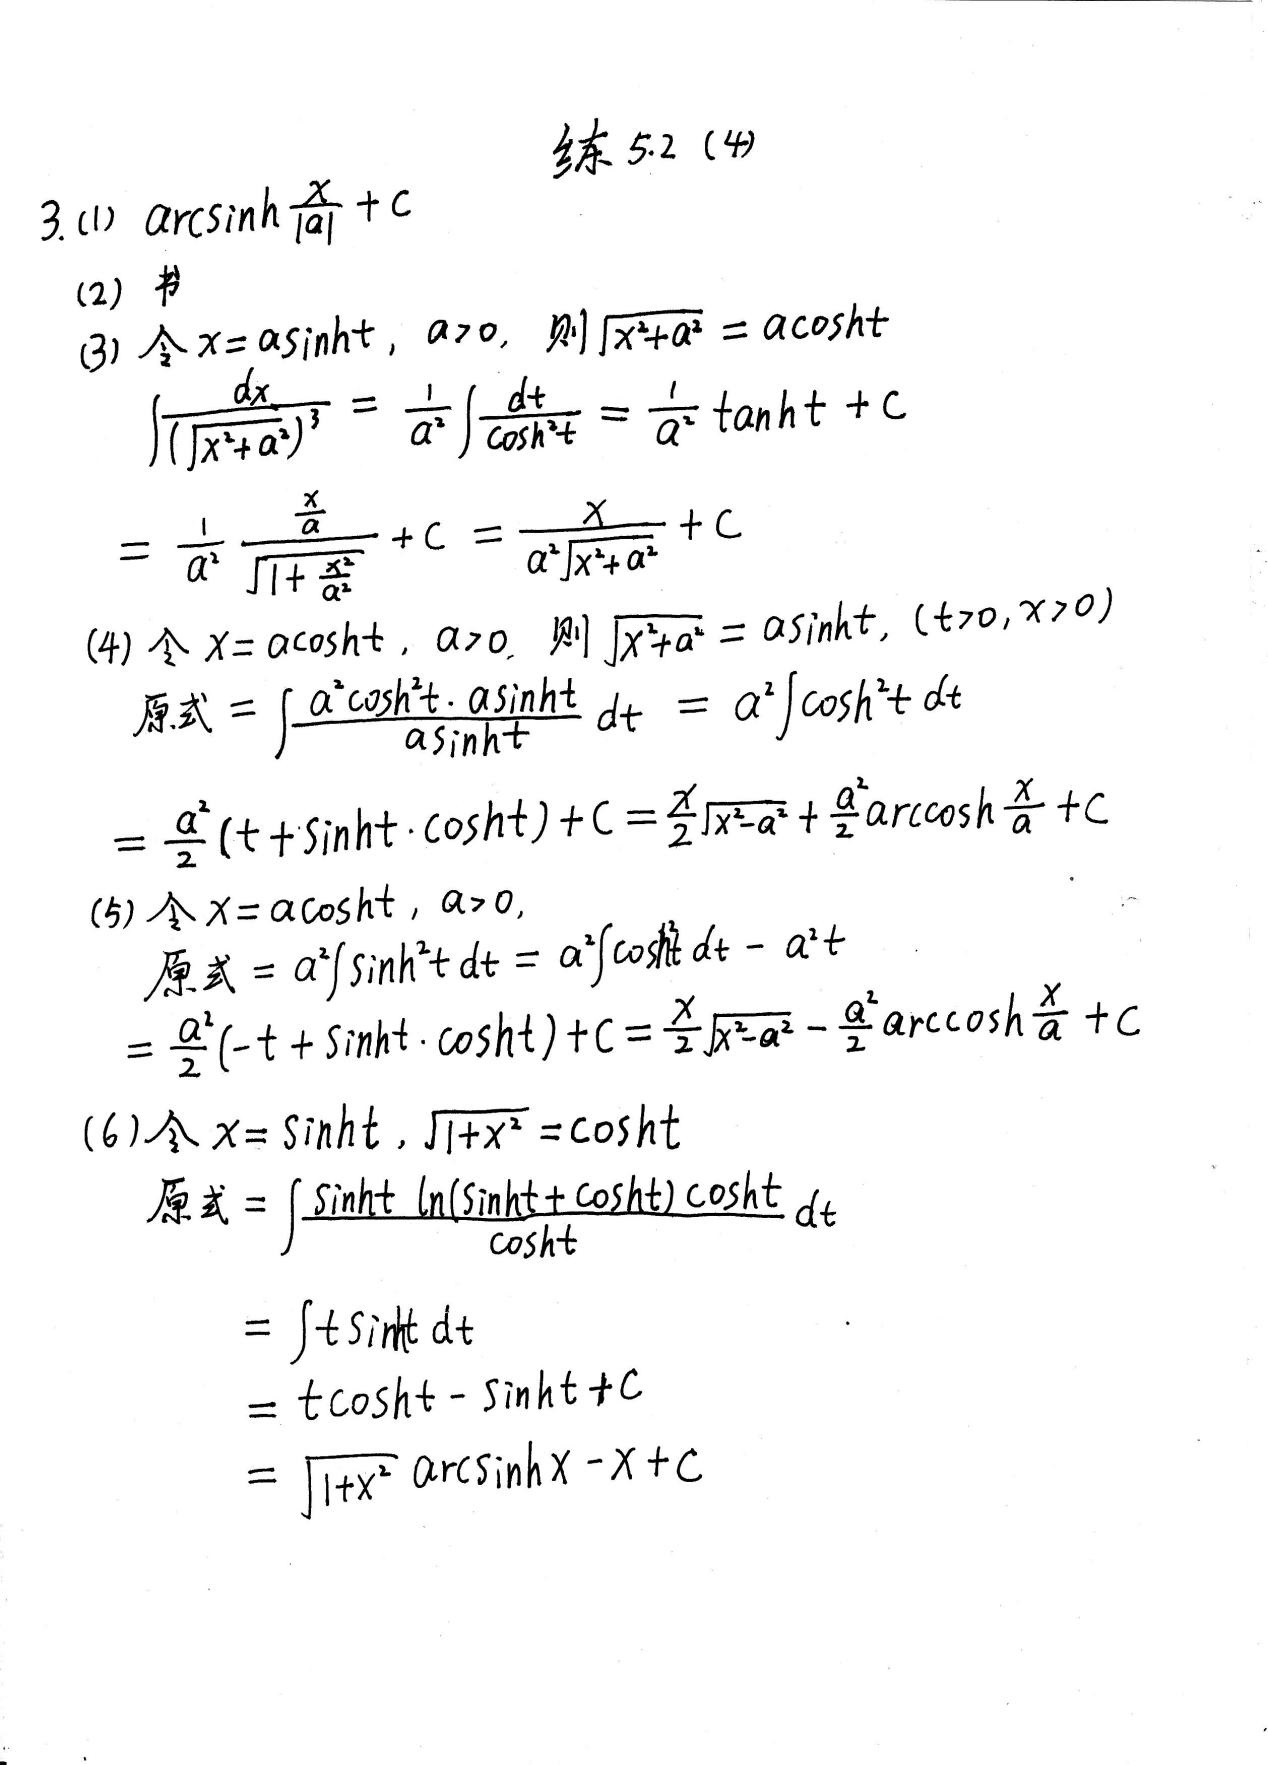 练 5.2 (4)
3. (1) arcsinh x/|a| + C
(2) 书
(3) 令 x = asinht, a>0, 则 √(x²+a²) = acosht
∫ dx/(√(x²+a²))³ = 1/a² ∫ dt/cosh²t = 1/a² tanht + C
= 1/a² (x/a)/√(1+x²/a²) + C = x/(a²√(x²+a²)) + C
(4) 令 x = acosht, a>0. 则 √(x²+a²) = asinht, (t>0, x>0)
原式 = ∫ (a²cosh²t · asinht)/(asinht) dt = a²∫cosh²t dt
= a²/2 (t + sinht · cosht) + C = x/2 √(x²-a²) + a²/2 arccosh x/a + C
(5) 令 x = acosht, a>0,
原式 = a²∫sinh²t dt = a²∫cosh²t dt - a²t
= a²/2 (-t + sinht · cosht) + C = x/2 √(x²-a²) - a²/2 arccosh x/a + C
(6) 令 x = sinht, √(1+x²) = cosht
原式 = ∫ (sinht ln(sinht + cosht) cosht)/(cosht) dt
= ∫t sinht dt
= tcosht - sinht + C
= √(1+x²) arcsinhx - x + C